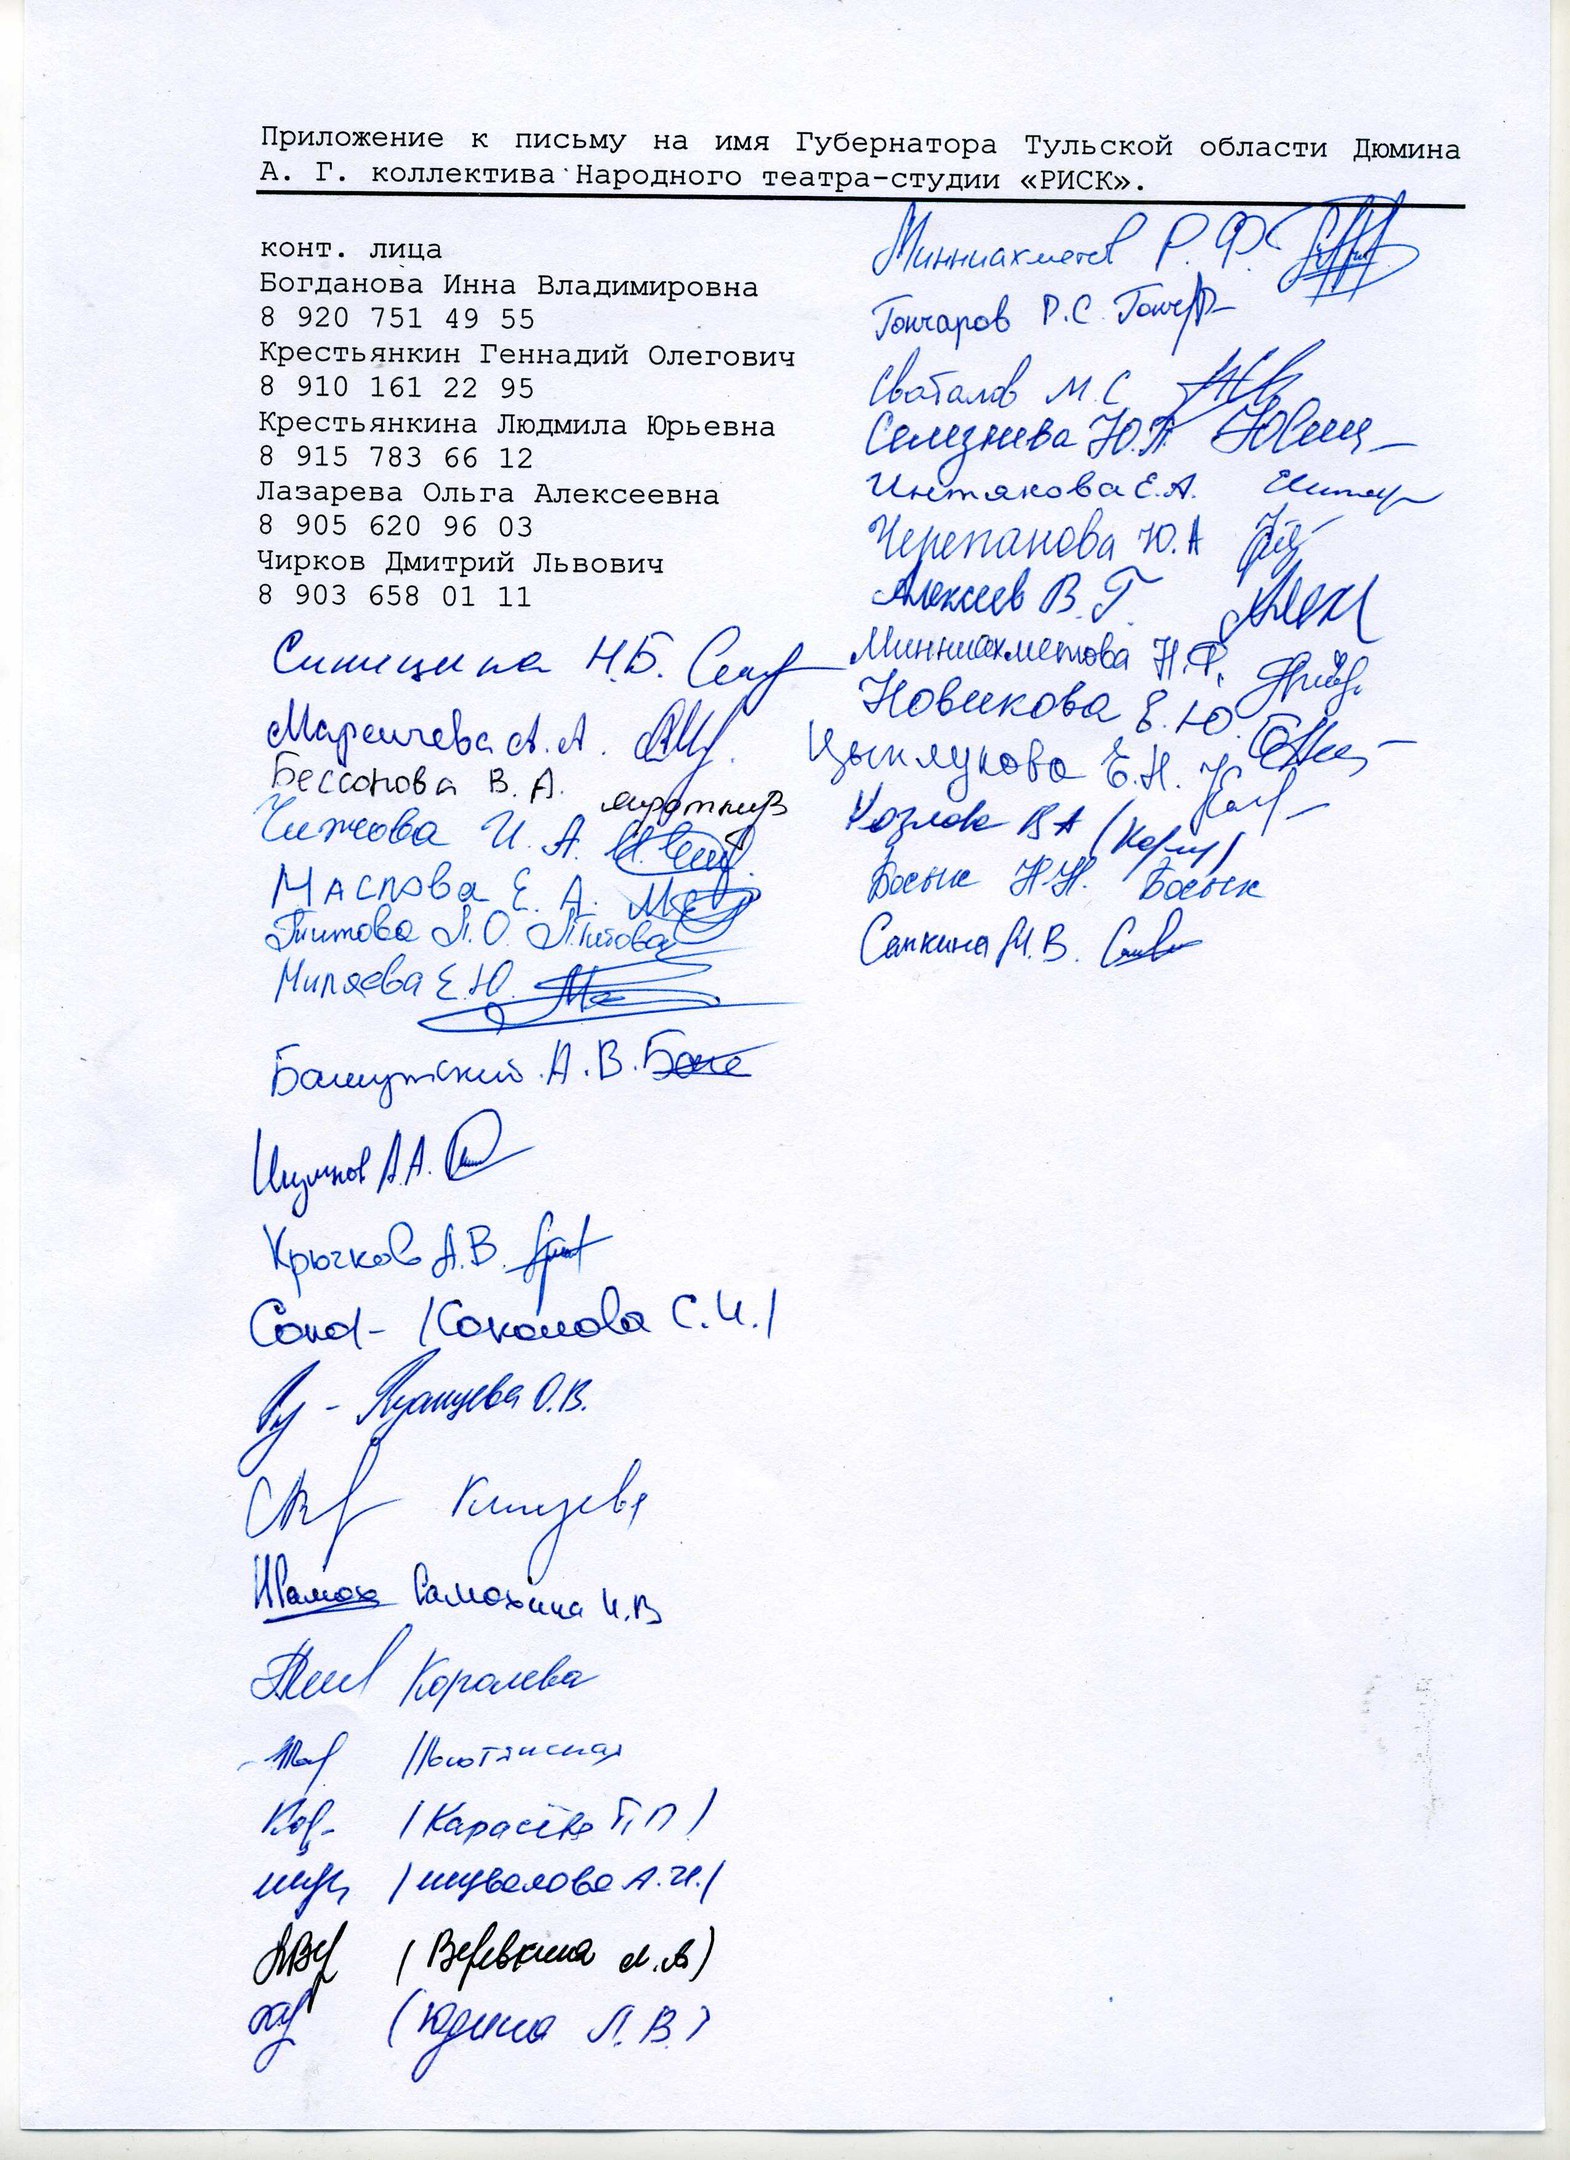 Приложение к письму на имя Губернатора Тульской области Дюмина
А. Г. коллектива Народного театра-студии «РИСК».
конт. лица
Богданова Инна Владимировна
8 920 751 49 55
Крестьянкин Геннадий Олегович
8 910 161 22 95
Крестьянкина Людмила Юрьевна
8 915 783 66 12
Лазарева Ольга Алексеевна
8 905 620 96 03
Чирков Дмитрий Львович
8 903 658 01 11
Синицина Н.Б.
Маричева А.А.
Бессонова В.А.
Чижова И.А.
Маслова Е.А.
Титова Л.О. Титова
Миляева Е.Ю.
Башутский А.В.
А.А.
Крючков А.В.
/Соколова С.И./
О.В.
Самохина И.В
Королева
/Карасёва Т.П/
/Шувалова А.И./
(Веревкина Л.А)
(Юдина Л.В)
Минниахметов Р.Ф.
Гончаров Р.С.
М.С
Селезнева Ю.А
Интякова Е.А.
Черепанова Ю.А
Алексеев В.Г.
Минниахметова Н.Ф.
Новикова Е.Ю.
Е.Н.
Козлова ВА
Босык Н.Н. Босык
Сапкина М.В.